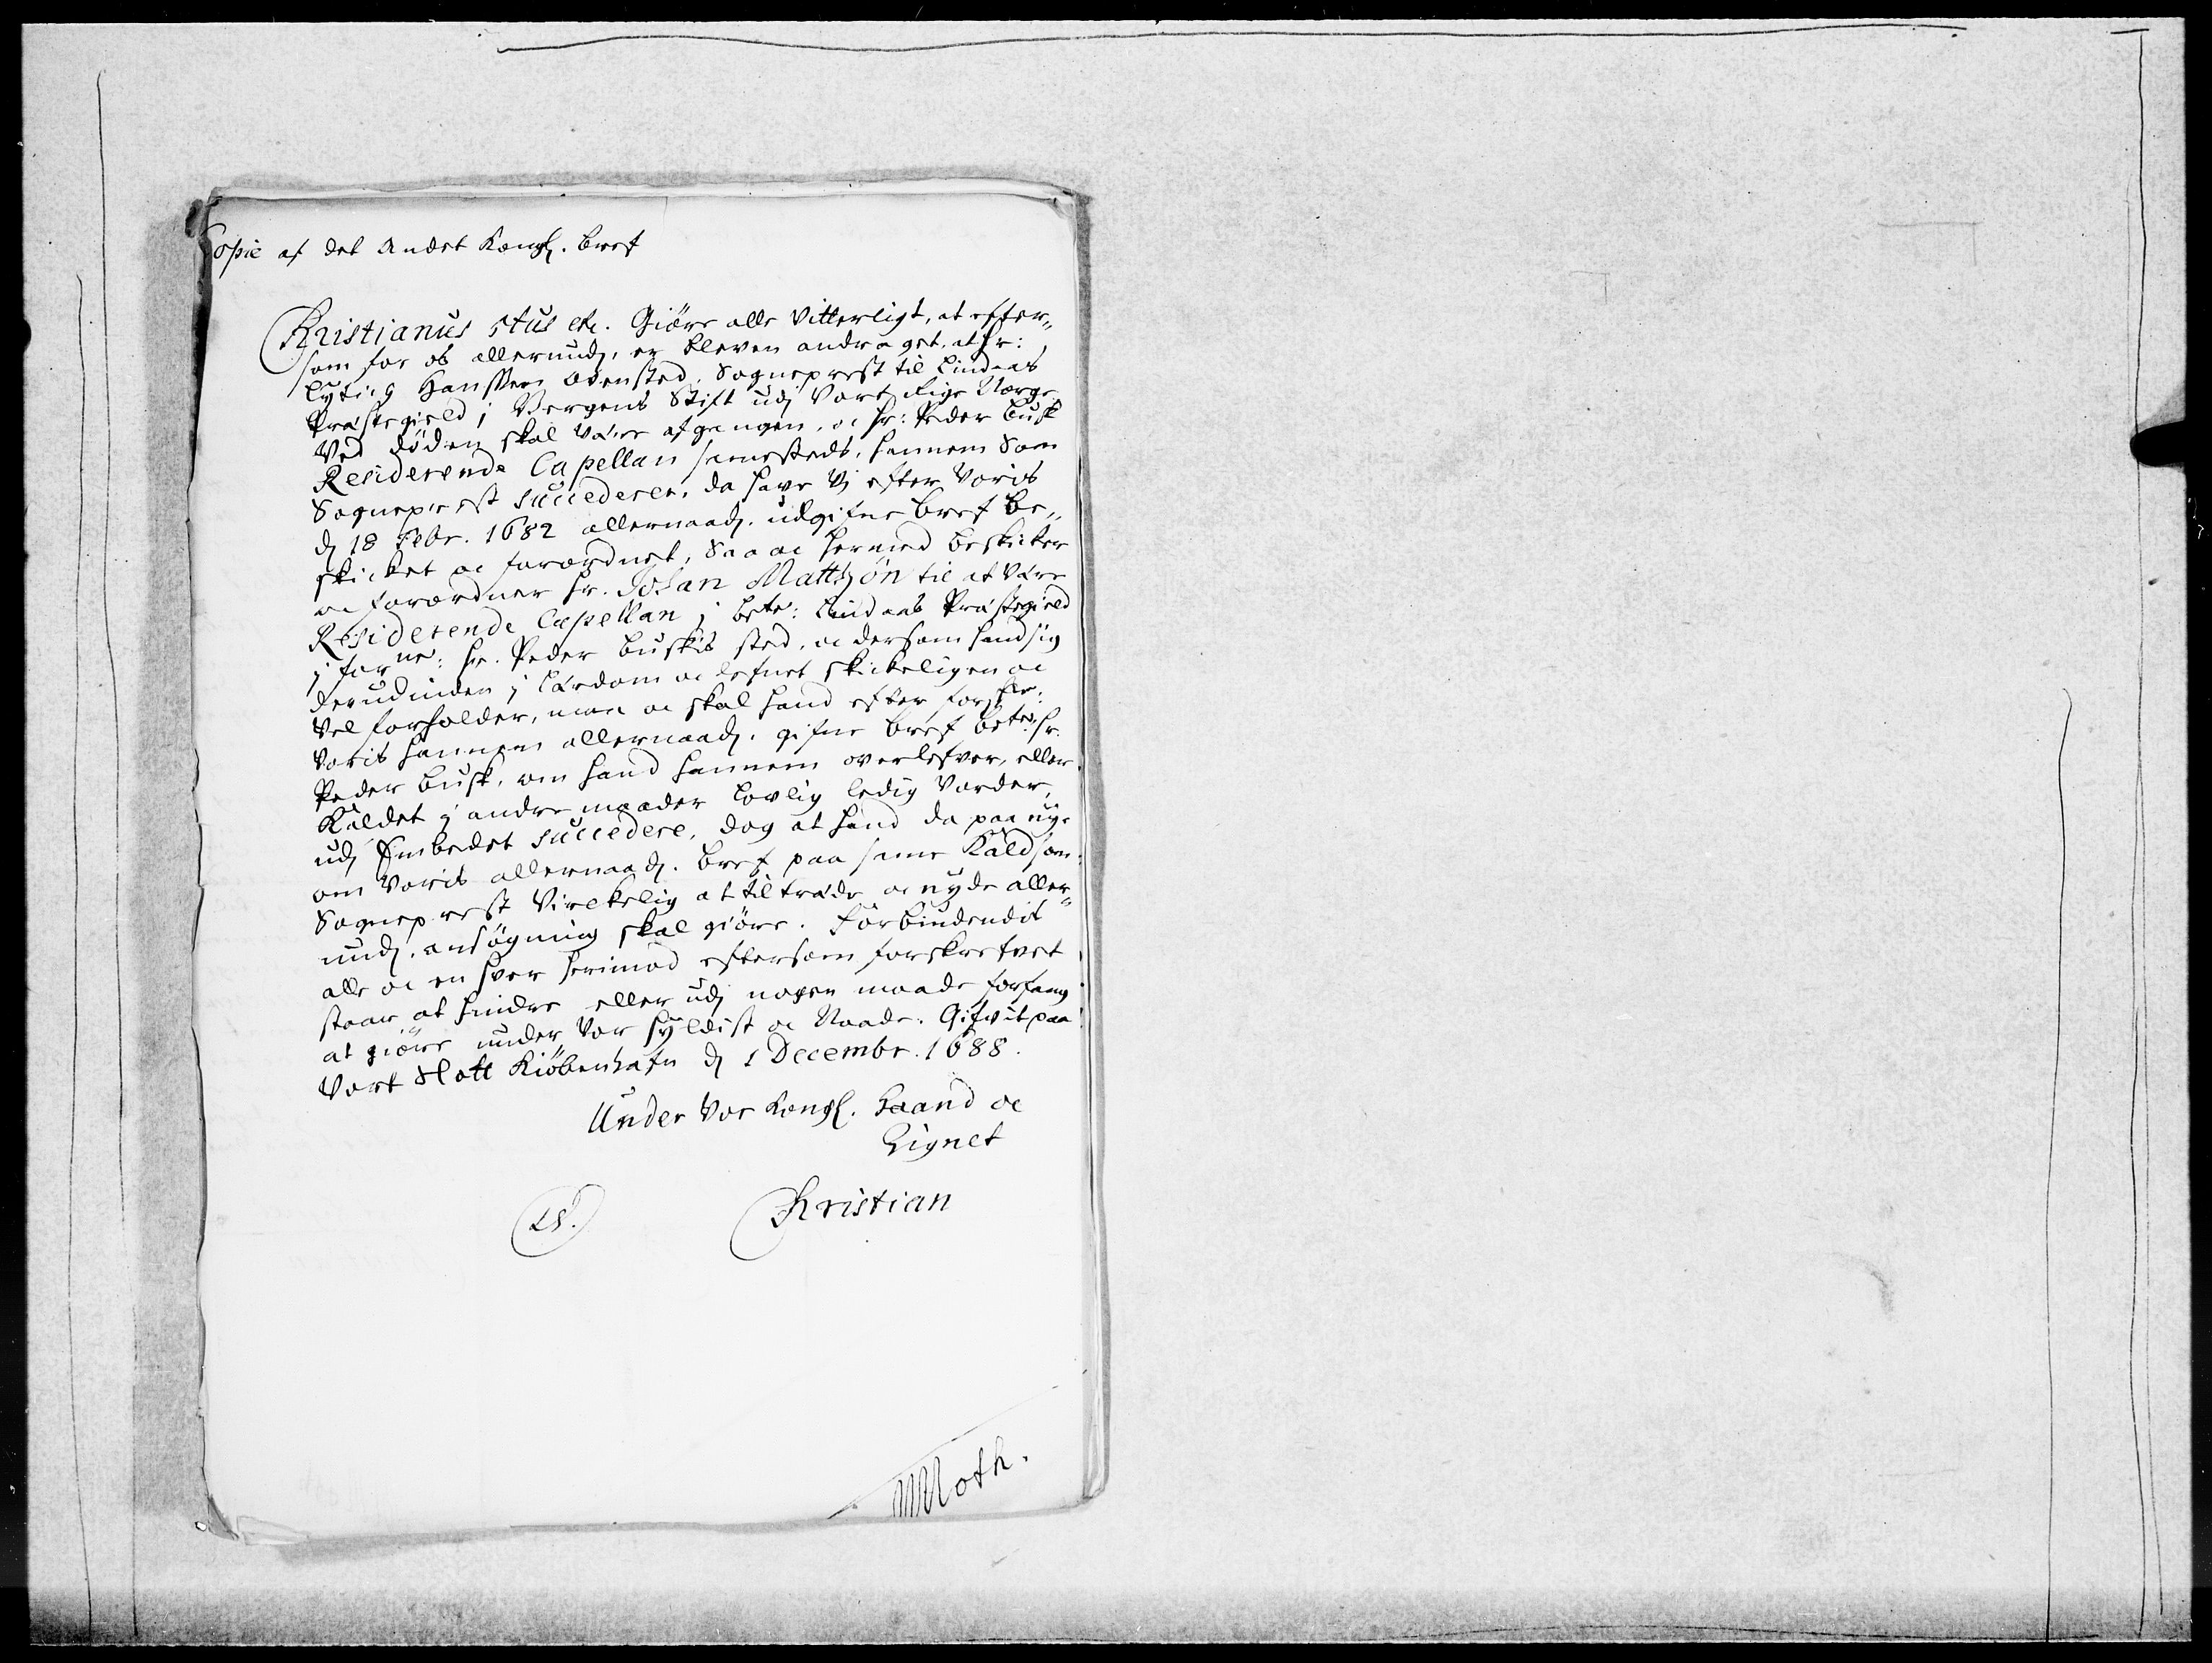 Copie af det Andet Kongl. bref
Christianus 5tus etc. Giöre alle Vitterligt, at efter„
som for os allerund. er bleven andraget, at Hr:
Hanssen Odensted, Sogneprest til Lindaas
Præstegield i Bergens Stift udj Vort Rige Norge
Ved döden skal være afgangen, oc Hr: Peder Busk
Residerende Capellan samesteds, hannem Som
Sogneprest succederer, da have Vj efter Voris
d 18 Febr. 1682 allernaad. udgifne bref be„
skicket oc forordnet, Saa oc hermed beskicker
oc forordner Hr. Johan Mattsøn til at være
Residerende Capellan j bete: Lindaas Præstegield
j forne: Hr. Peder Buskis sted, oc dersom hand sig
derudinden j lærdom oc lefnet skickeligen oc
Vel forholder, maa oc skal hand efter forschr:
Voris hannem allernaad. gifne bref bete: Hr.
Peder Busk, om hand hannem overlefver, eller
Kaldet j andre maader lovlig ledig Vorder,
udj Embedet succedere, dog at hand da paa nye
om Voris allernaad. bref paa same Kald som
Sogneprest Virckelig at tiltræde oc nyde aller„
und. ansögning skal giöre. Forbindendis
alle oc en hver herimod eftersom forskrefvet
staar at hindre eller udj nogen maade forfang
at giöre under Vor hyldist oc Naade. Gifvit paa
Vort Slott Kiöbenhafn d 1 Decembr. 1688.
Under Vor Kongl. Haand oc
Signet
LS.
Christian
MMoth.